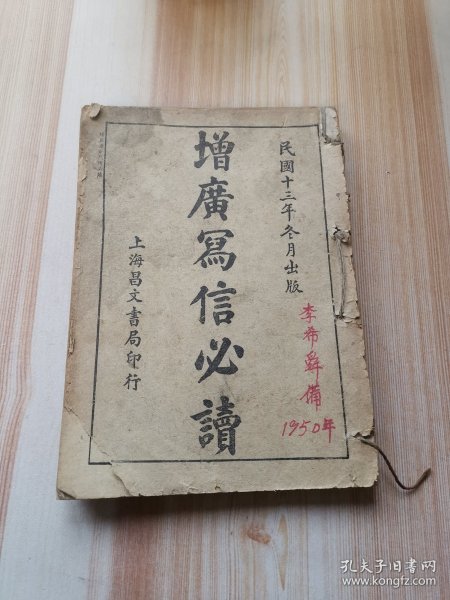 民國十三年冬月出版
增廣冩信必讀
上海昌文書局印行
李希舜備
1950年
孔夫子旧书网
www.kongfz.com